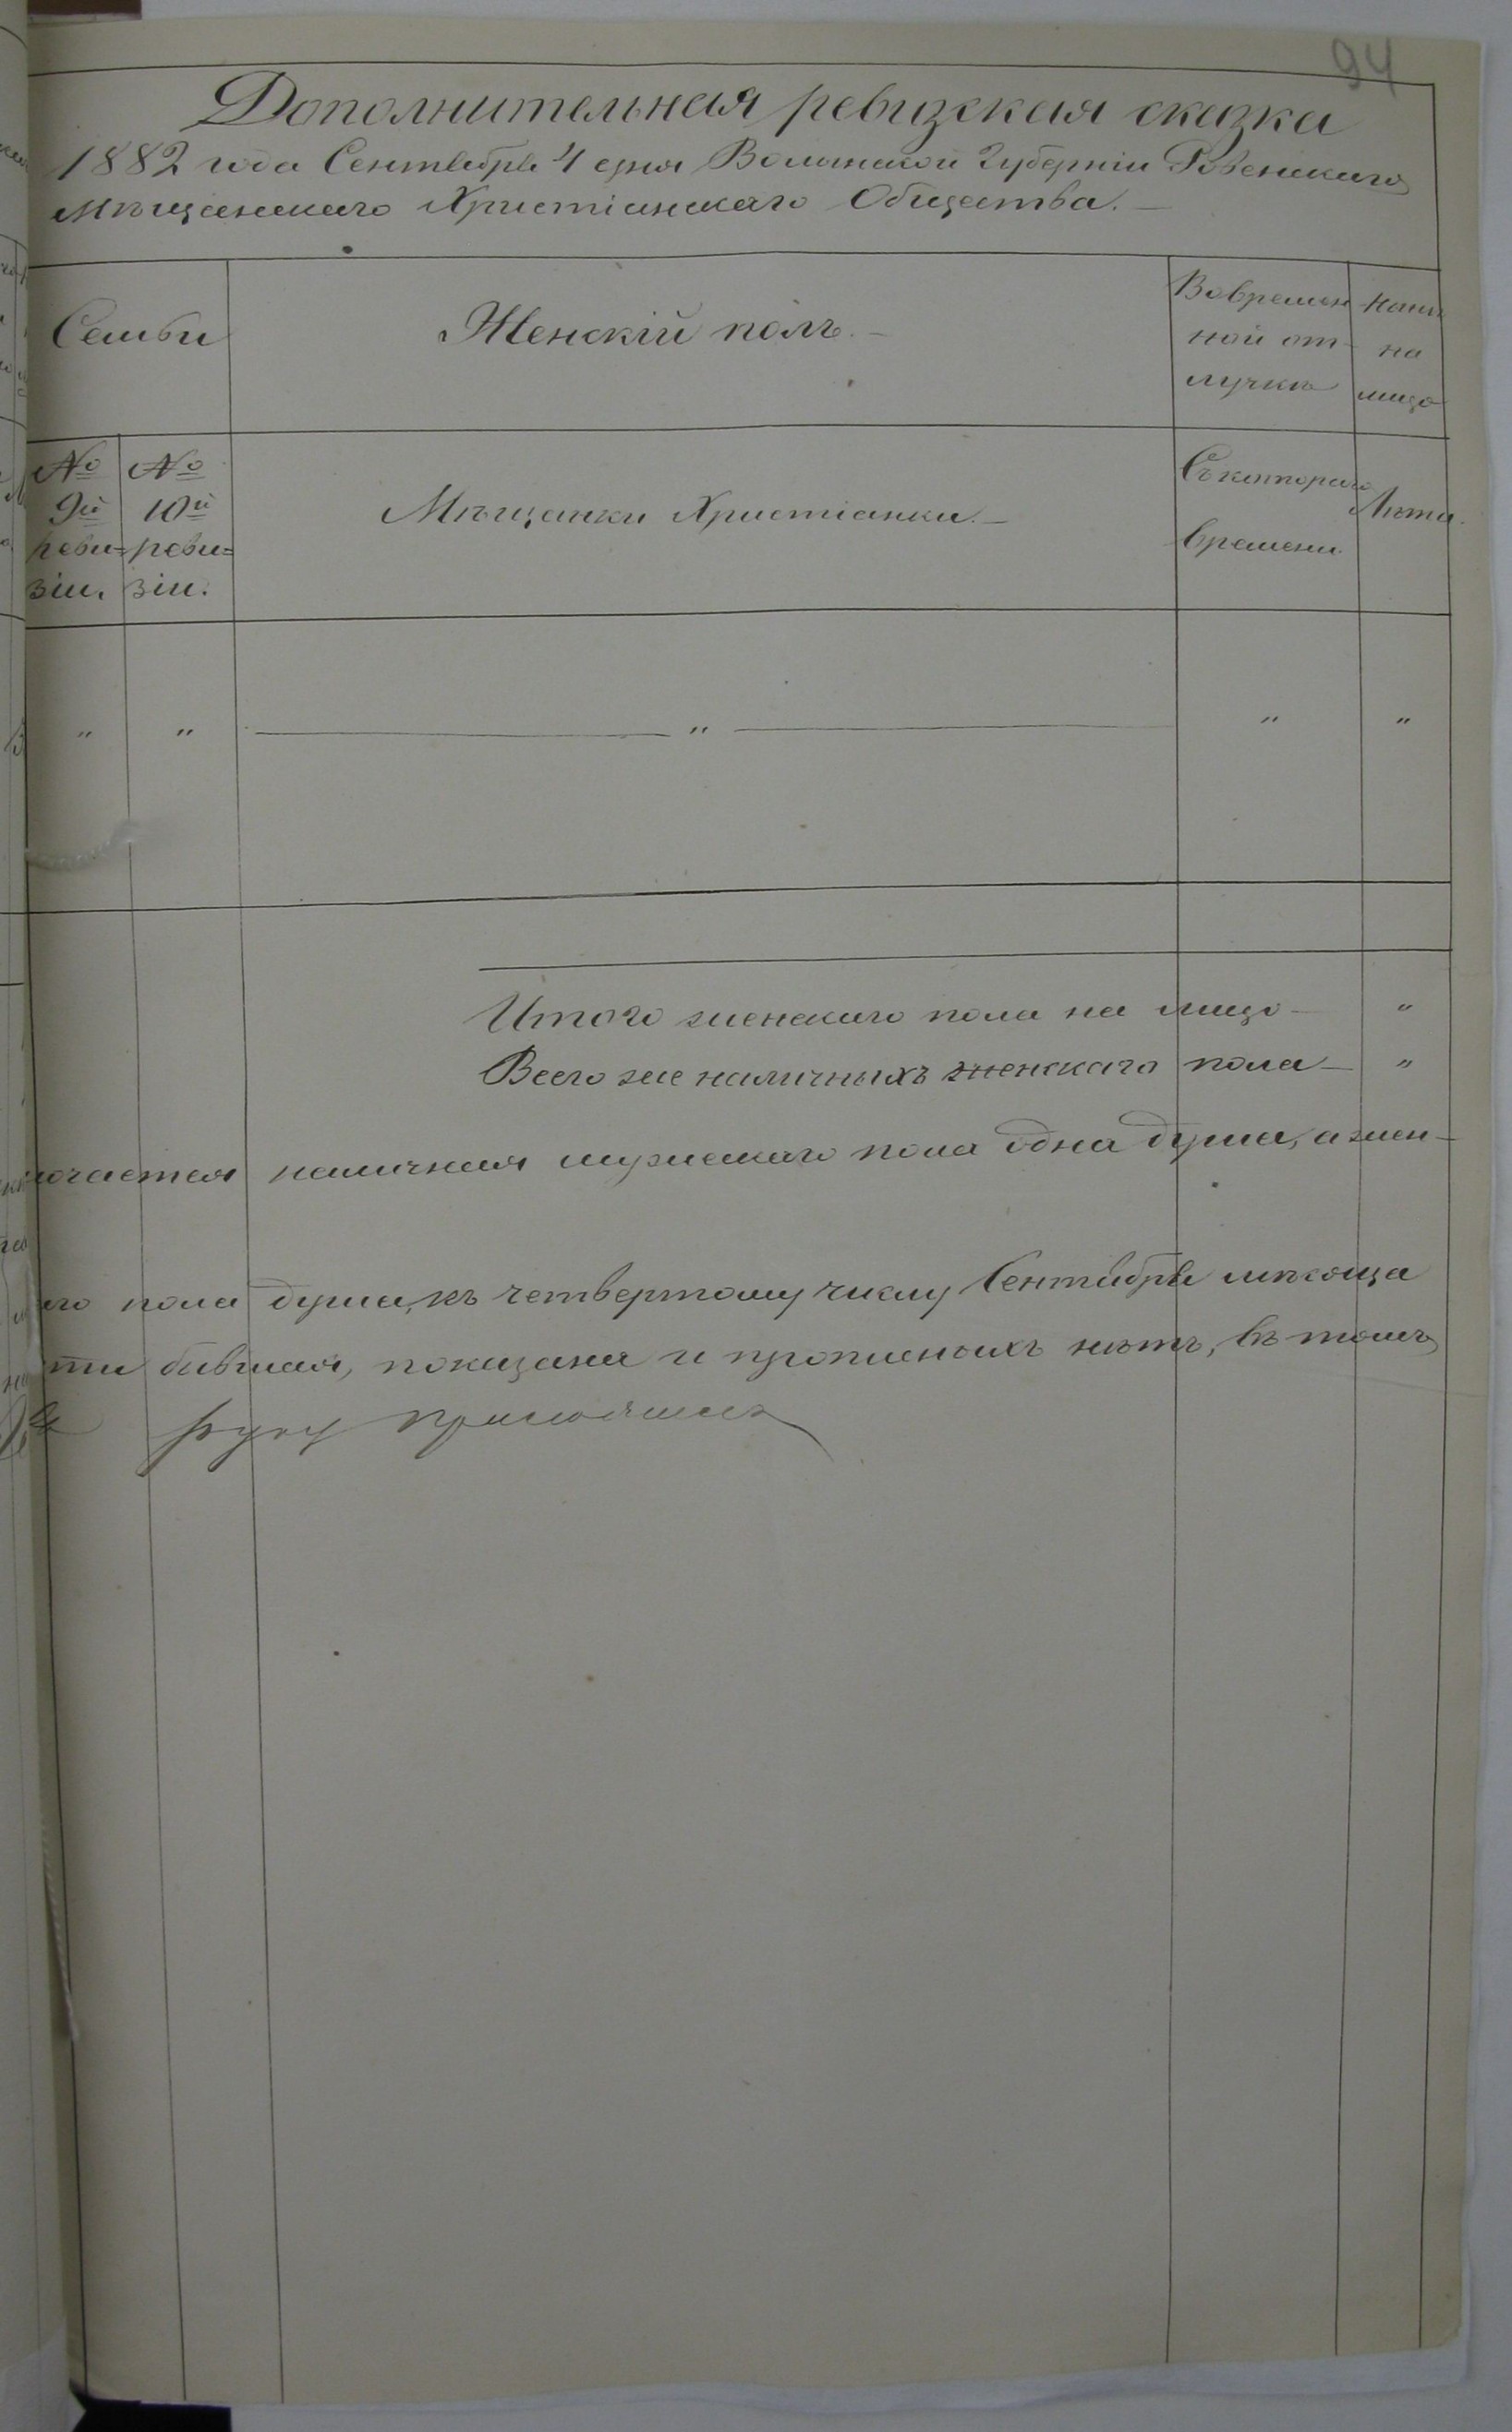 94
Дополнительная ревизская сказка
1882 года Сентября 4 дня Волынской Губерніи Ровенскаго
Мѣщанскаго Христіанскаго Общества. —
Семьи
Женскій полъ. —
Во времен
ной от
лучкѣ
на
лицо
№
9й
реви=
зіи.
№
10й
реви=
зіи.
Мѣщанки Христіанки. —
Съ котораго
времени.
Лѣта.
" " — " — " "
Итого женскаго пола на лицо — "
Всего же наличныхъ женскаго пола — "
ючается наличная мужескаго пола одна душа, а жен-
го пола душа, къ четвертому числу Сентября мѣсяца
ти бывшая, показана и прописныхъ нѣтъ, въ томъ
руку приложилъ